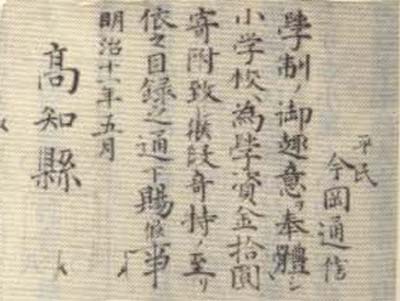 平民
今岡通信
學制ノ御趣意ヲ奉體シ
小学校ヘ為學資金拾圓
寄附致候段奇特ノ至リ
依之目録之通下賜候事
明治十一年五月
高知縣